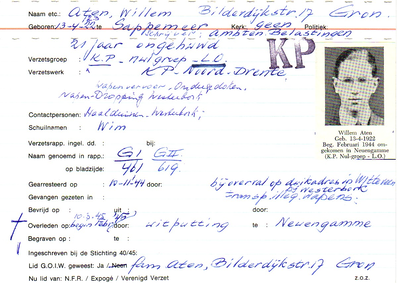 Naam etc: Aten, Willem Bilderdijkstr. 17 Gron.
Geboren: 13-4-1922 te Sappemeer Kerk geen Politiek.
schrijver ambten Belastingen
21 jaar ongehuwd
KP
Verzetsgroep : K.P. - nulgroep - L.O.
Verzetswerk : K.P. Noord-Drente
wapenvervoer, Onderduikers
Wapen-Dropping
Contactpersonen:
Schuilnamen : Wim
Willem Aten
Geb. 13-4-1922
Beg. Februari 1944 om-
gekomen in Neuengamme
(K.P. Nul-groep - L.O.)
Verzetsrapp. ingel. dd. :
Naam genoemd in rapp.: GI GII
op bladzijde : 461 619
Gearresteerd op : 10-11-44 door: bij overval op duikadres in Witteveen
bij Westerbork
Gevangen gezeten in :
Bevrijd op : uit door:
10-2-45
Overleden op: begin febr. door: uitputting te Neuengamme
Begraven op : te :
Ingeschreven bij de Stichting 40/45:
Lid G.O.I.W. geweest: Ja / Neen fam. Aten, Bilderdijkstr. 17 Gron
Nu lid van: N.F.R. / Expogé / Verenigd Verzet z.o.z.